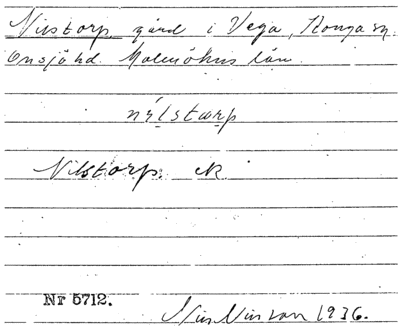 Nilstorp, gård i Vega, Konga sn.
Onsjö hd. Malmöhus län
nilstarp
Nilstorp.
Nr 5712.
Nils Nilsson 1936.